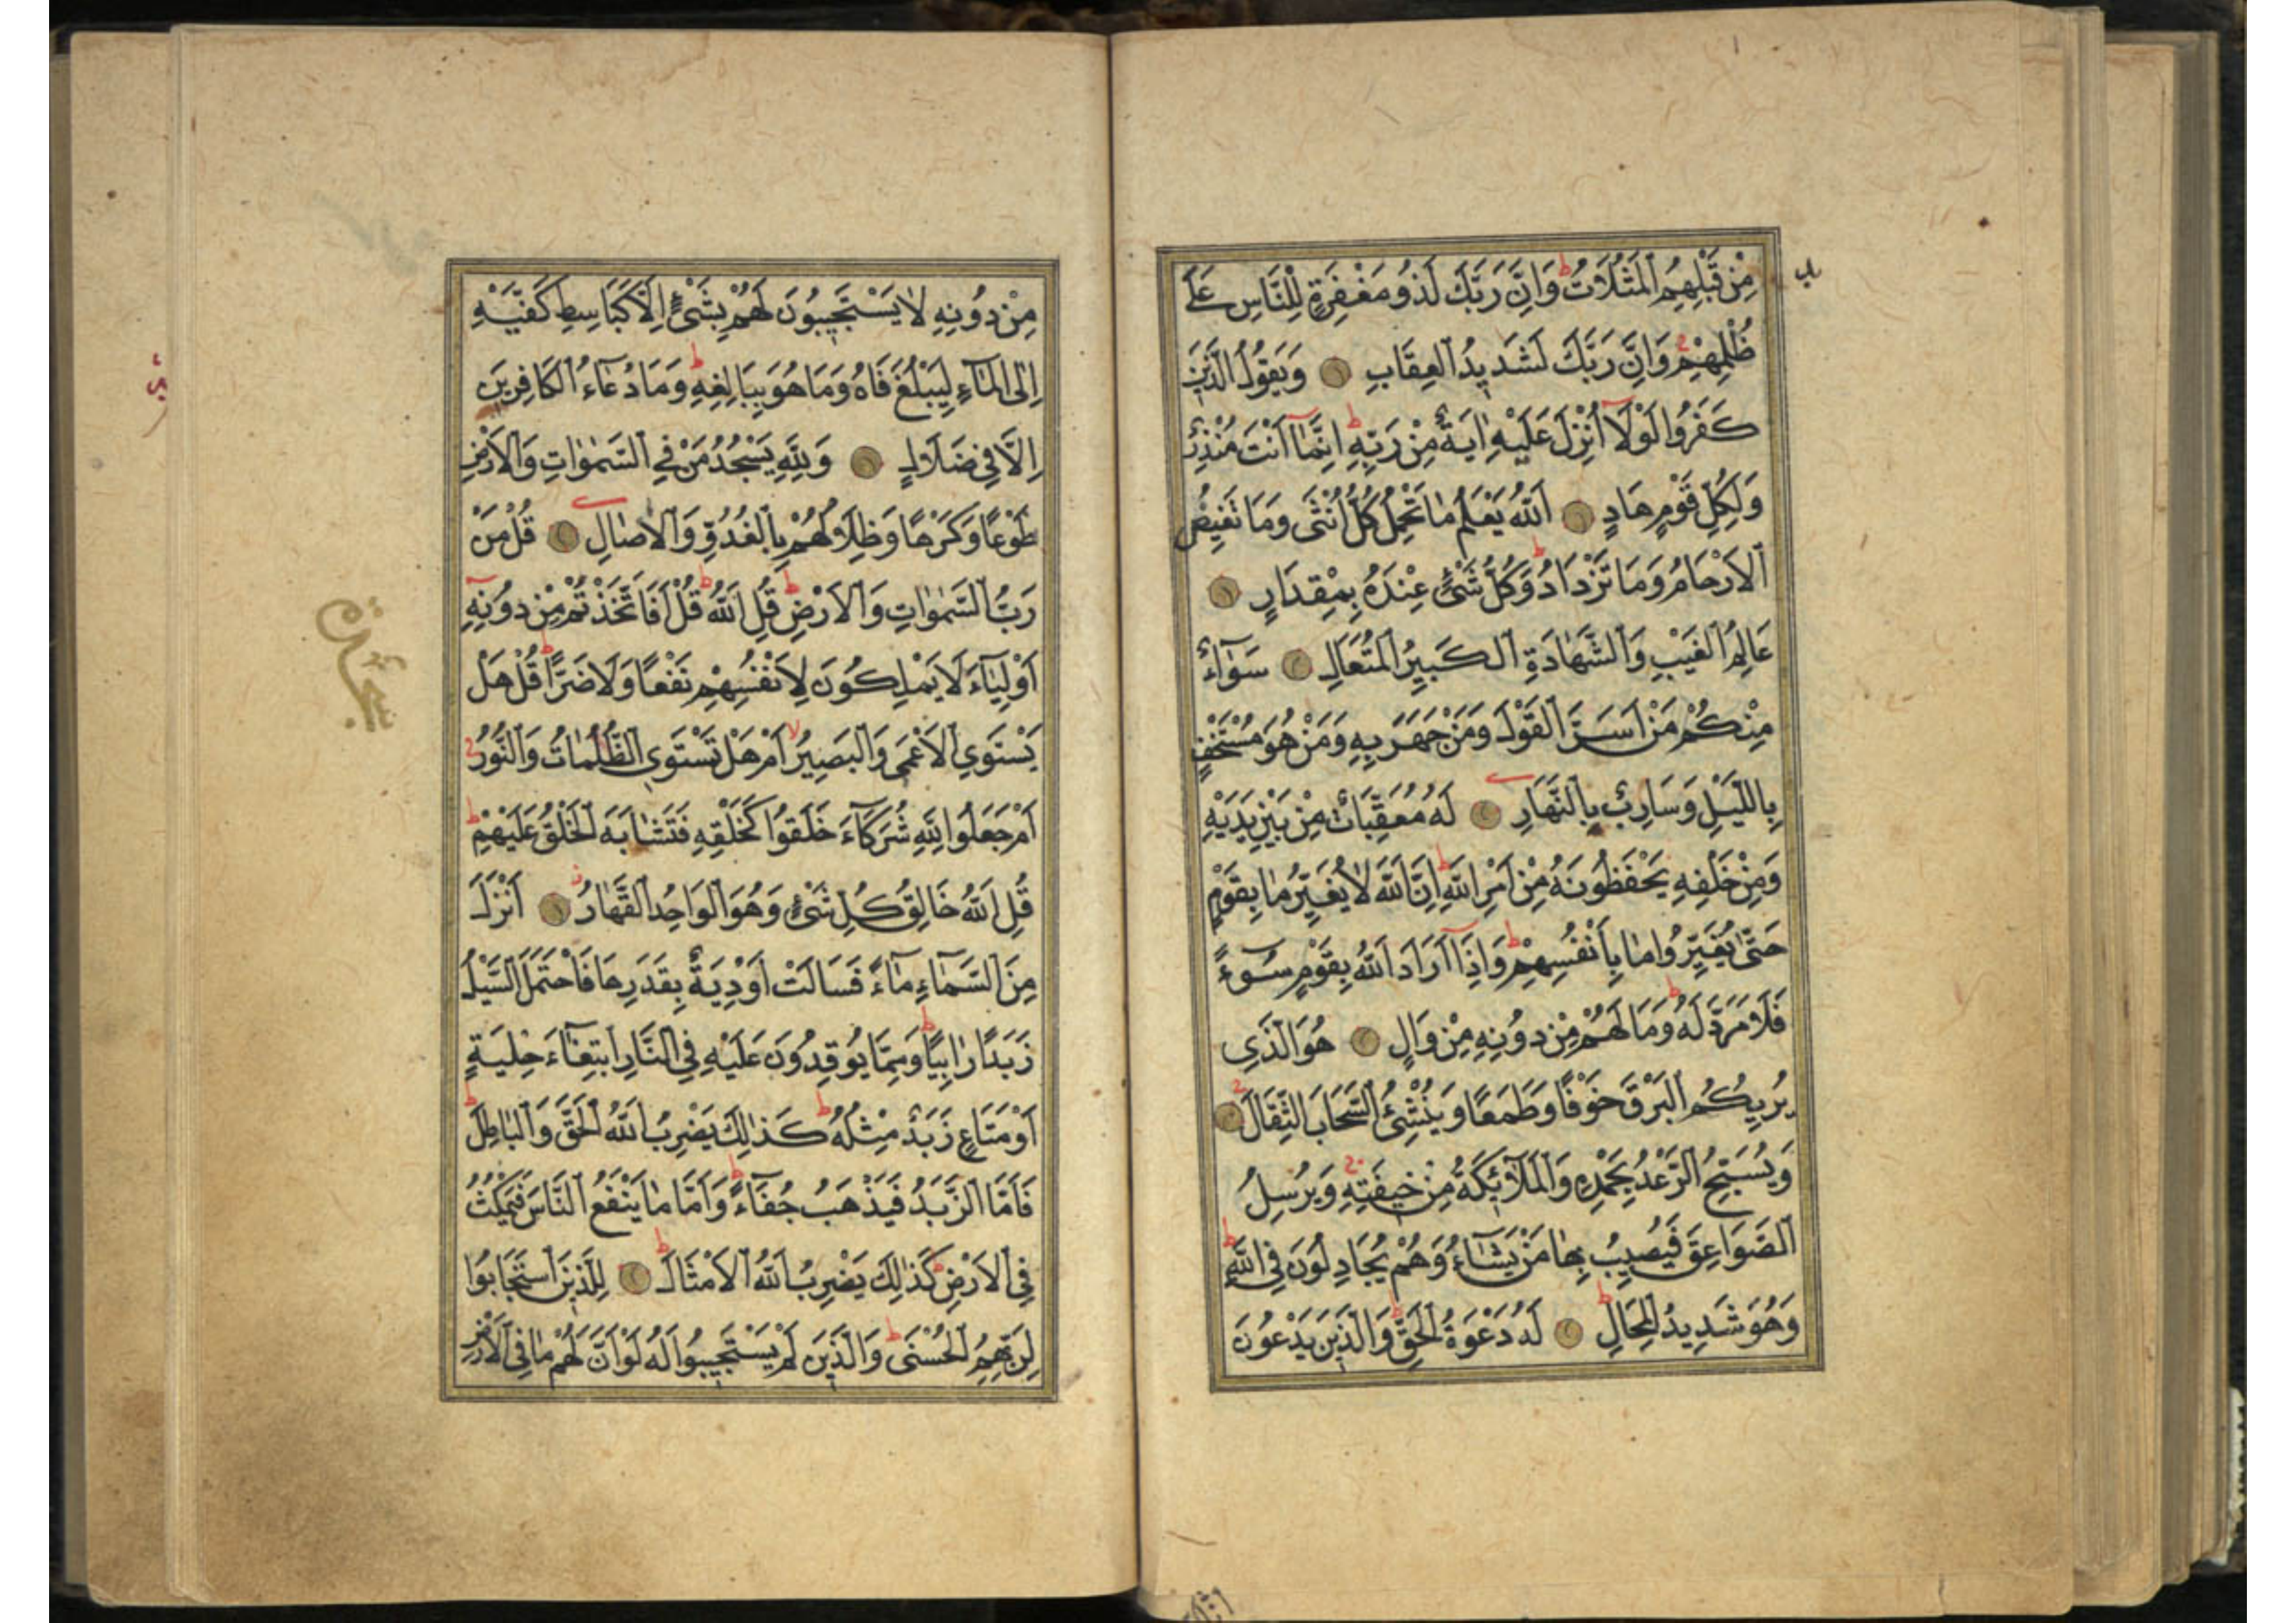 مِنْ قَبْلِهِمُ الْمَثُلَاتُ ط وَاِنَّ رَبَّكَ لَذُو مَغْفِرَةٍ لِلنَّاسِ عَلٰى
ظُلْمِهِمْ وَاِنَّ رَبَّكَ لَشَدِيدُ الْعِقَابِ وَيَقُولُ الَّذِينَ
كَفَرُوا لَوْلَآ اُنْزِلَ عَلَيْهِ اٰيَةٌ مِنْ رَبِّهِ ط اِنَّمَآ اَنْتَ مُنْذِرٌ
وَلِكُلِّ قَوْمٍ هَادٍ اَللّٰهُ يَعْلَمُ مَا تَحْمِلُ كُلُّ اُنْثٰى وَمَا تَغِيضُ
الْاَرْحَامُ وَمَا تَزْدَادُ ط وَكُلُّ شَيْءٍ عِنْدَهُ بِمِقْدَارٍ
عَالِمُ الْغَيْبِ وَالشَّهَادَةِ الْكَبِيرُ الْمُتَعَالِ سَوَآءٌ
مِنْكُمْ مَنْ اَسَرَّ الْقَوْلَ وَمَنْ جَهَرَ بِهِ وَمَنْ هُوَ مُسْتَخْفٍ
بِاللَّيْلِ وَسَارِبٌ بِالنَّهَارِ لَهُ مُعَقِّبَاتٌ مِنْ بَيْنِ يَدَيْهِ
وَمِنْ خَلْفِهِ يَحْفَظُونَهُ مِنْ اَمْرِ اللّٰهِ ط اِنَّ اللّٰهَ لَا يُغَيِّرُ مَا بِقَوْمٍ
حَتّٰى يُغَيِّرُوا مَا بِاَنْفُسِهِمْ ط وَاِذَآ اَرَادَ اللّٰهُ بِقَوْمٍ سُوءً
فَلَا مَرَدَّ لَهُ ط وَمَا لَهُمْ مِنْ دُونِهِ مِنْ وَالٍ هُوَ الَّذِي
يُرِيكُمُ الْبَرْقَ خَوْفًا وَطَمَعًا وَيُنْشِئُ السَّحَابَ الثِّقَالَ
وَيُسَبِّحُ الرَّعْدُ بِحَمْدِهِ وَالْمَلٰٓئِكَةُ مِنْ خِيفَتِهِ وَيُرْسِلُ
الصَّوَاعِقَ فَيُصِيبُ بِهَا مَنْ يَشَآءُ وَهُمْ يُجَادِلُونَ فِي اللّٰهِ ط
وَهُوَ شَدِيدُ الْمِحَالِ ط لَهُ دَعْوَةُ الْحَقِّ ط وَالَّذِينَ يَدْعُونَ
مِنْ دُونِهِ لَا يَسْتَجِيبُونَ لَهُمْ بِشَيْءٍ اِلَّا كَبَاسِطِ كَفَّيْهِ
اِلَى الْمَآءِ لِيَبْلُغَ فَاهُ وَمَا هُوَ بِبَالِغِهِ ط وَمَا دُعَآءُ الْكَافِرِينَ
اِلَّا فِي ضَلَالٍ وَلِلّٰهِ يَسْجُدُ مَنْ فِي السَّمٰوَاتِ وَالْاَرْضِ
طَوْعًا وَكَرْهًا وَظِلَالُهُمْ بِالْغُدُوِّ وَالْاٰصَالِ قُلْ مَنْ
رَبُّ السَّمٰوَاتِ وَالْاَرْضِ ط قُلِ اللّٰهُ ط قُلْ اَفَاتَّخَذْتُمْ مِنْ دُونِهِ
اَوْلِيَآءَ لَا يَمْلِكُونَ لِاَنْفُسِهِمْ نَفْعًا وَلَا ضَرًّا ط قُلْ هَلْ
يَسْتَوِي الْاَعْمٰى وَالْبَصِيرُ لا اَمْ هَلْ تَسْتَوِي الظُّلُمَاتُ وَالنُّورُ
اَمْ جَعَلُوا لِلّٰهِ شُرَكَآءَ خَلَقُوا كَخَلْقِهِ فَتَشَابَهَ الْخَلْقُ عَلَيْهِمْ ط
قُلِ اللّٰهُ خَالِقُ كُلِّ شَيْءٍ وَهُوَ الْوَاحِدُ الْقَهَّارُ اَنْزَلَ
مِنَ السَّمَآءِ مَآءً فَسَالَتْ اَوْدِيَةٌ بِقَدَرِهَا فَاحْتَمَلَ السَّيْلُ
زَبَدًا رَابِيًا ط وَمِمَّا يُوقِدُونَ عَلَيْهِ فِي النَّارِ ابْتِغَآءَ حِلْيَةٍ
اَوْ مَتَاعٍ زَبَدٌ مِثْلُهُ ط كَذٰلِكَ يَضْرِبُ اللّٰهُ الْحَقَّ وَالْبَاطِلَ ط
فَاَمَّا الزَّبَدُ فَيَذْهَبُ جُفَآءً ط وَاَمَّا مَا يَنْفَعُ النَّاسَ فَيَمْكُثُ
فِي الْاَرْضِ كَذٰلِكَ يَضْرِبُ اللّٰهُ الْاَمْثَالَ ط لِلَّذِينَ اسْتَجَابُوا
لِرَبِّهِمُ الْحُسْنٰى ط وَالَّذِينَ لَمْ يَسْتَجِيبُوا لَهُ لَوْ اَنَّ لَهُمْ مَا فِي الْاَرْضِ
سجدة